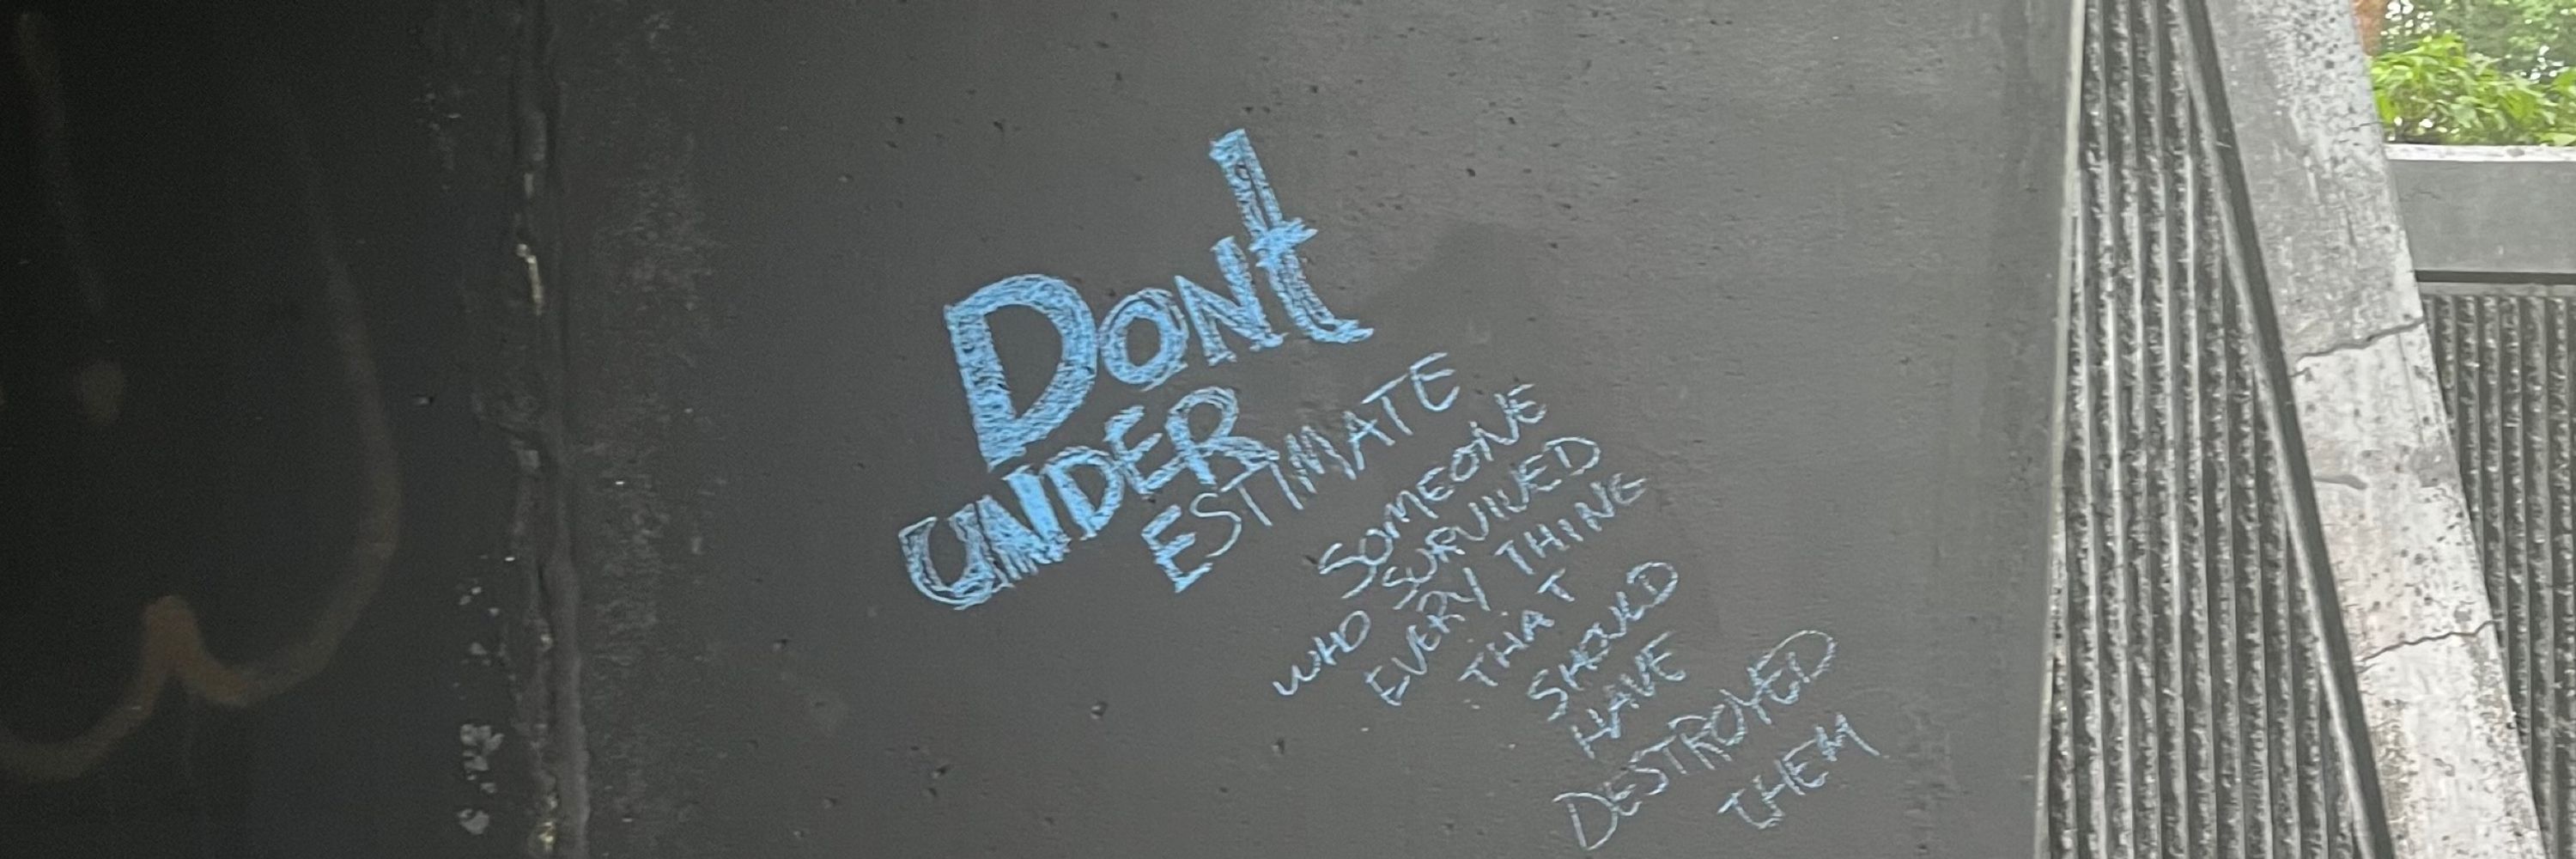 Dont
UNDER
ESTIMATE
SOMEONE
WHO SURVIVED
EVERY THING
THAT
SHOULD
HAVE
DESTROYED
THEM